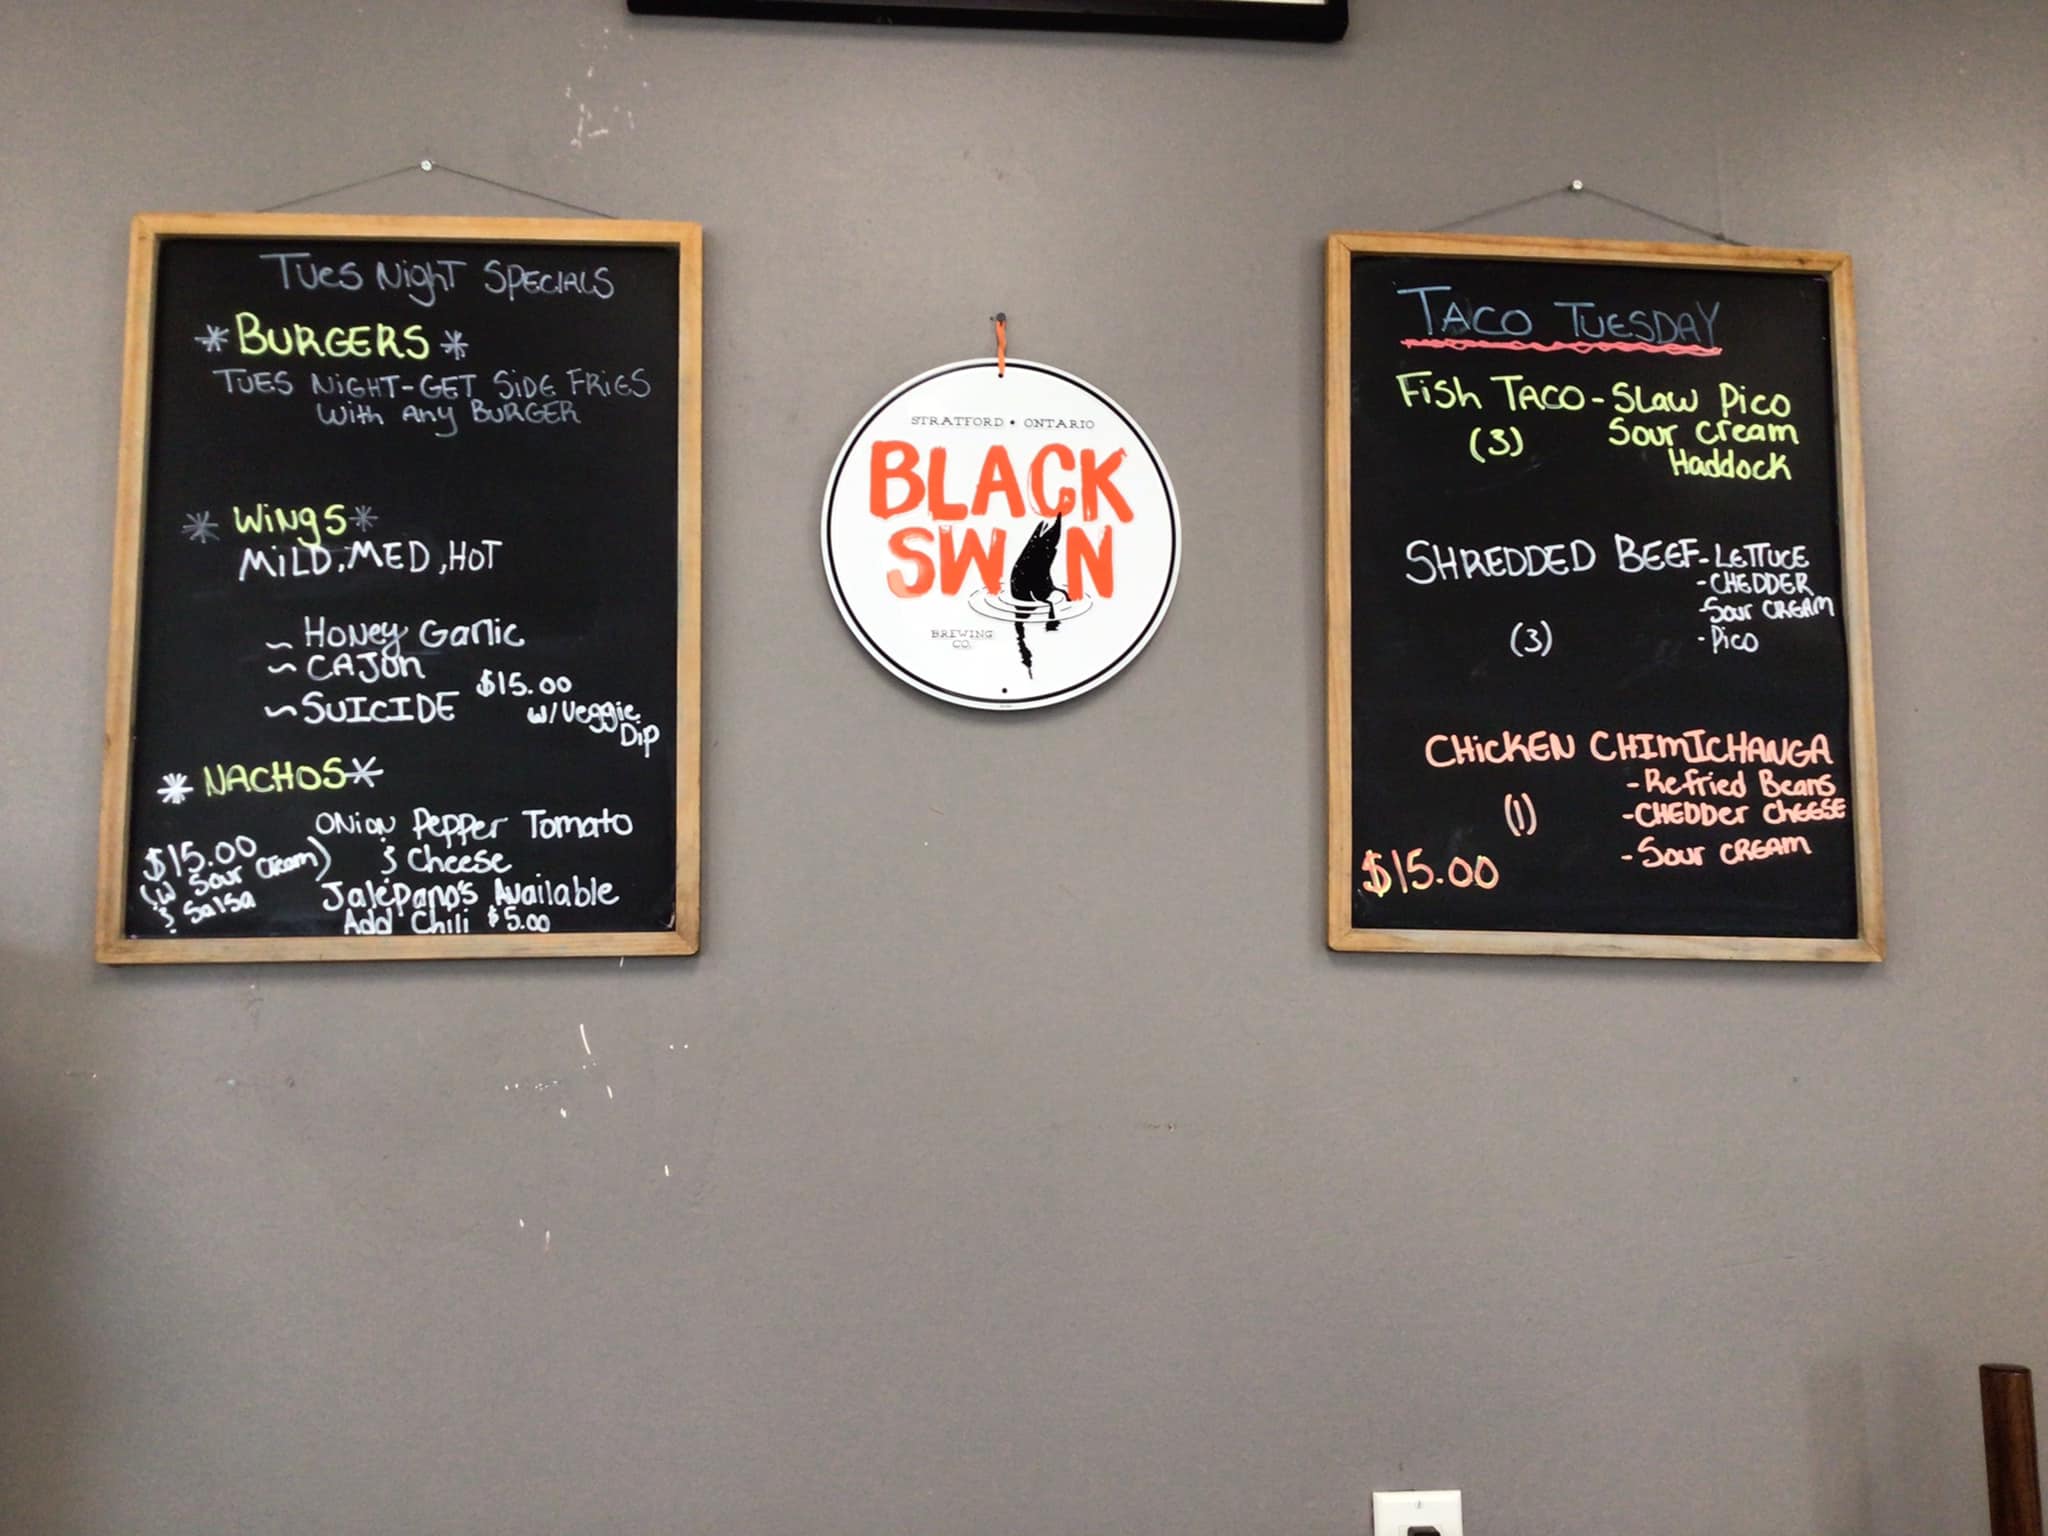 Tues Night Specials
*BURGERS*
TUES NIGHT-GET SIDE FRIES
with any BURGER
*Wings*
MILD, MED, HOT
~ Honey Garlic
~ CAJun
~ SUICIDE $15.00
w/Veggie
Dip
*NACHOS*
ONion Pepper Tomato
& Cheese
$15.00
(w Sour Cream)
& Salsa
Jalepano's Available
Add Chili $5.00
STRATFORD • ONTARIO
BLACK
SWAN
BREWING
CO.
TACO TUESDAY
Fish TACO - Slaw Pico
(3) Sour Cream
Haddock
SHREDDED BEEF - LETTUCE
- CHEDDER
- Sour CREAM
(3) - Pico
CHICKEN CHIMICHANGA
- Refried Beans
(1) - CHEDDer CHEESE
- Sour CREAM
$15.00